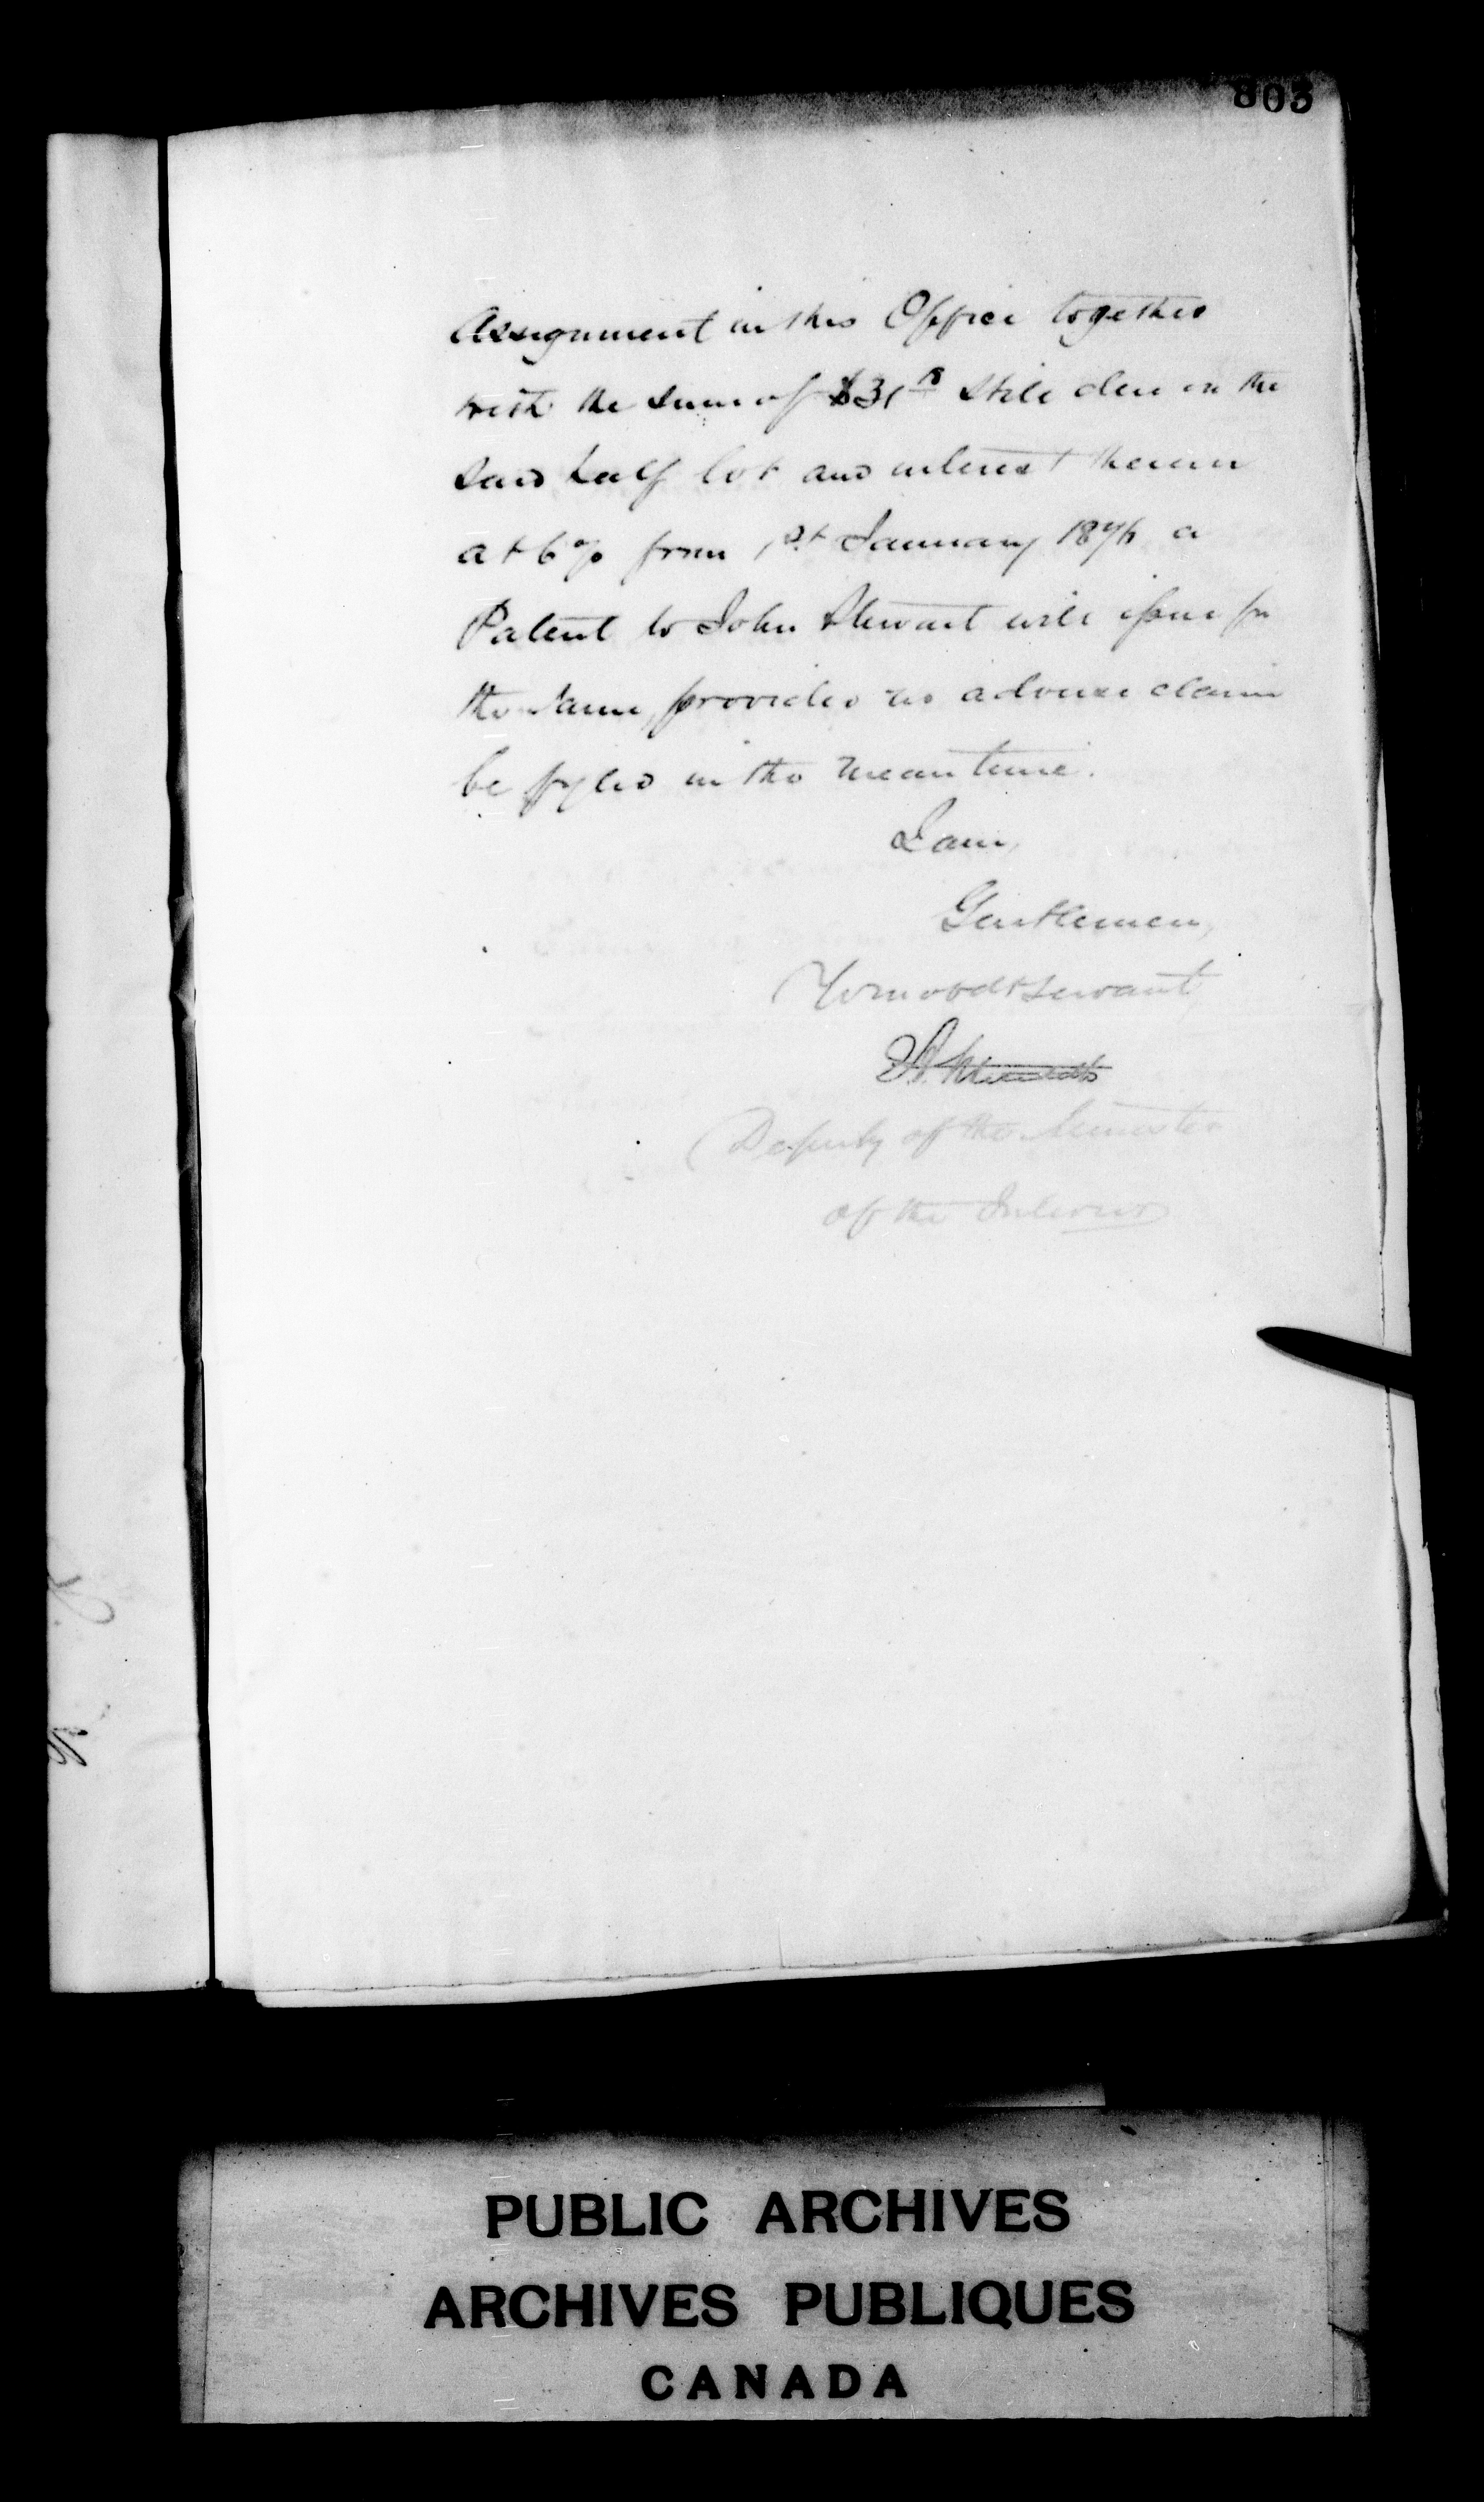 803
Assignment in this Office together
with the sum of $31 still due on the
said half lot and interest thereon
at 6% from 1st January 1876 a
Patent to John Stewart will issue for
the same, provided no adverse claim
be fyled in the meantime.
I am,
Gentlemen,
Yr most obdt servant
Deputy of the Minister
of the Interior
PUBLIC ARCHIVES
ARCHIVES PUBLIQUES
CANADA